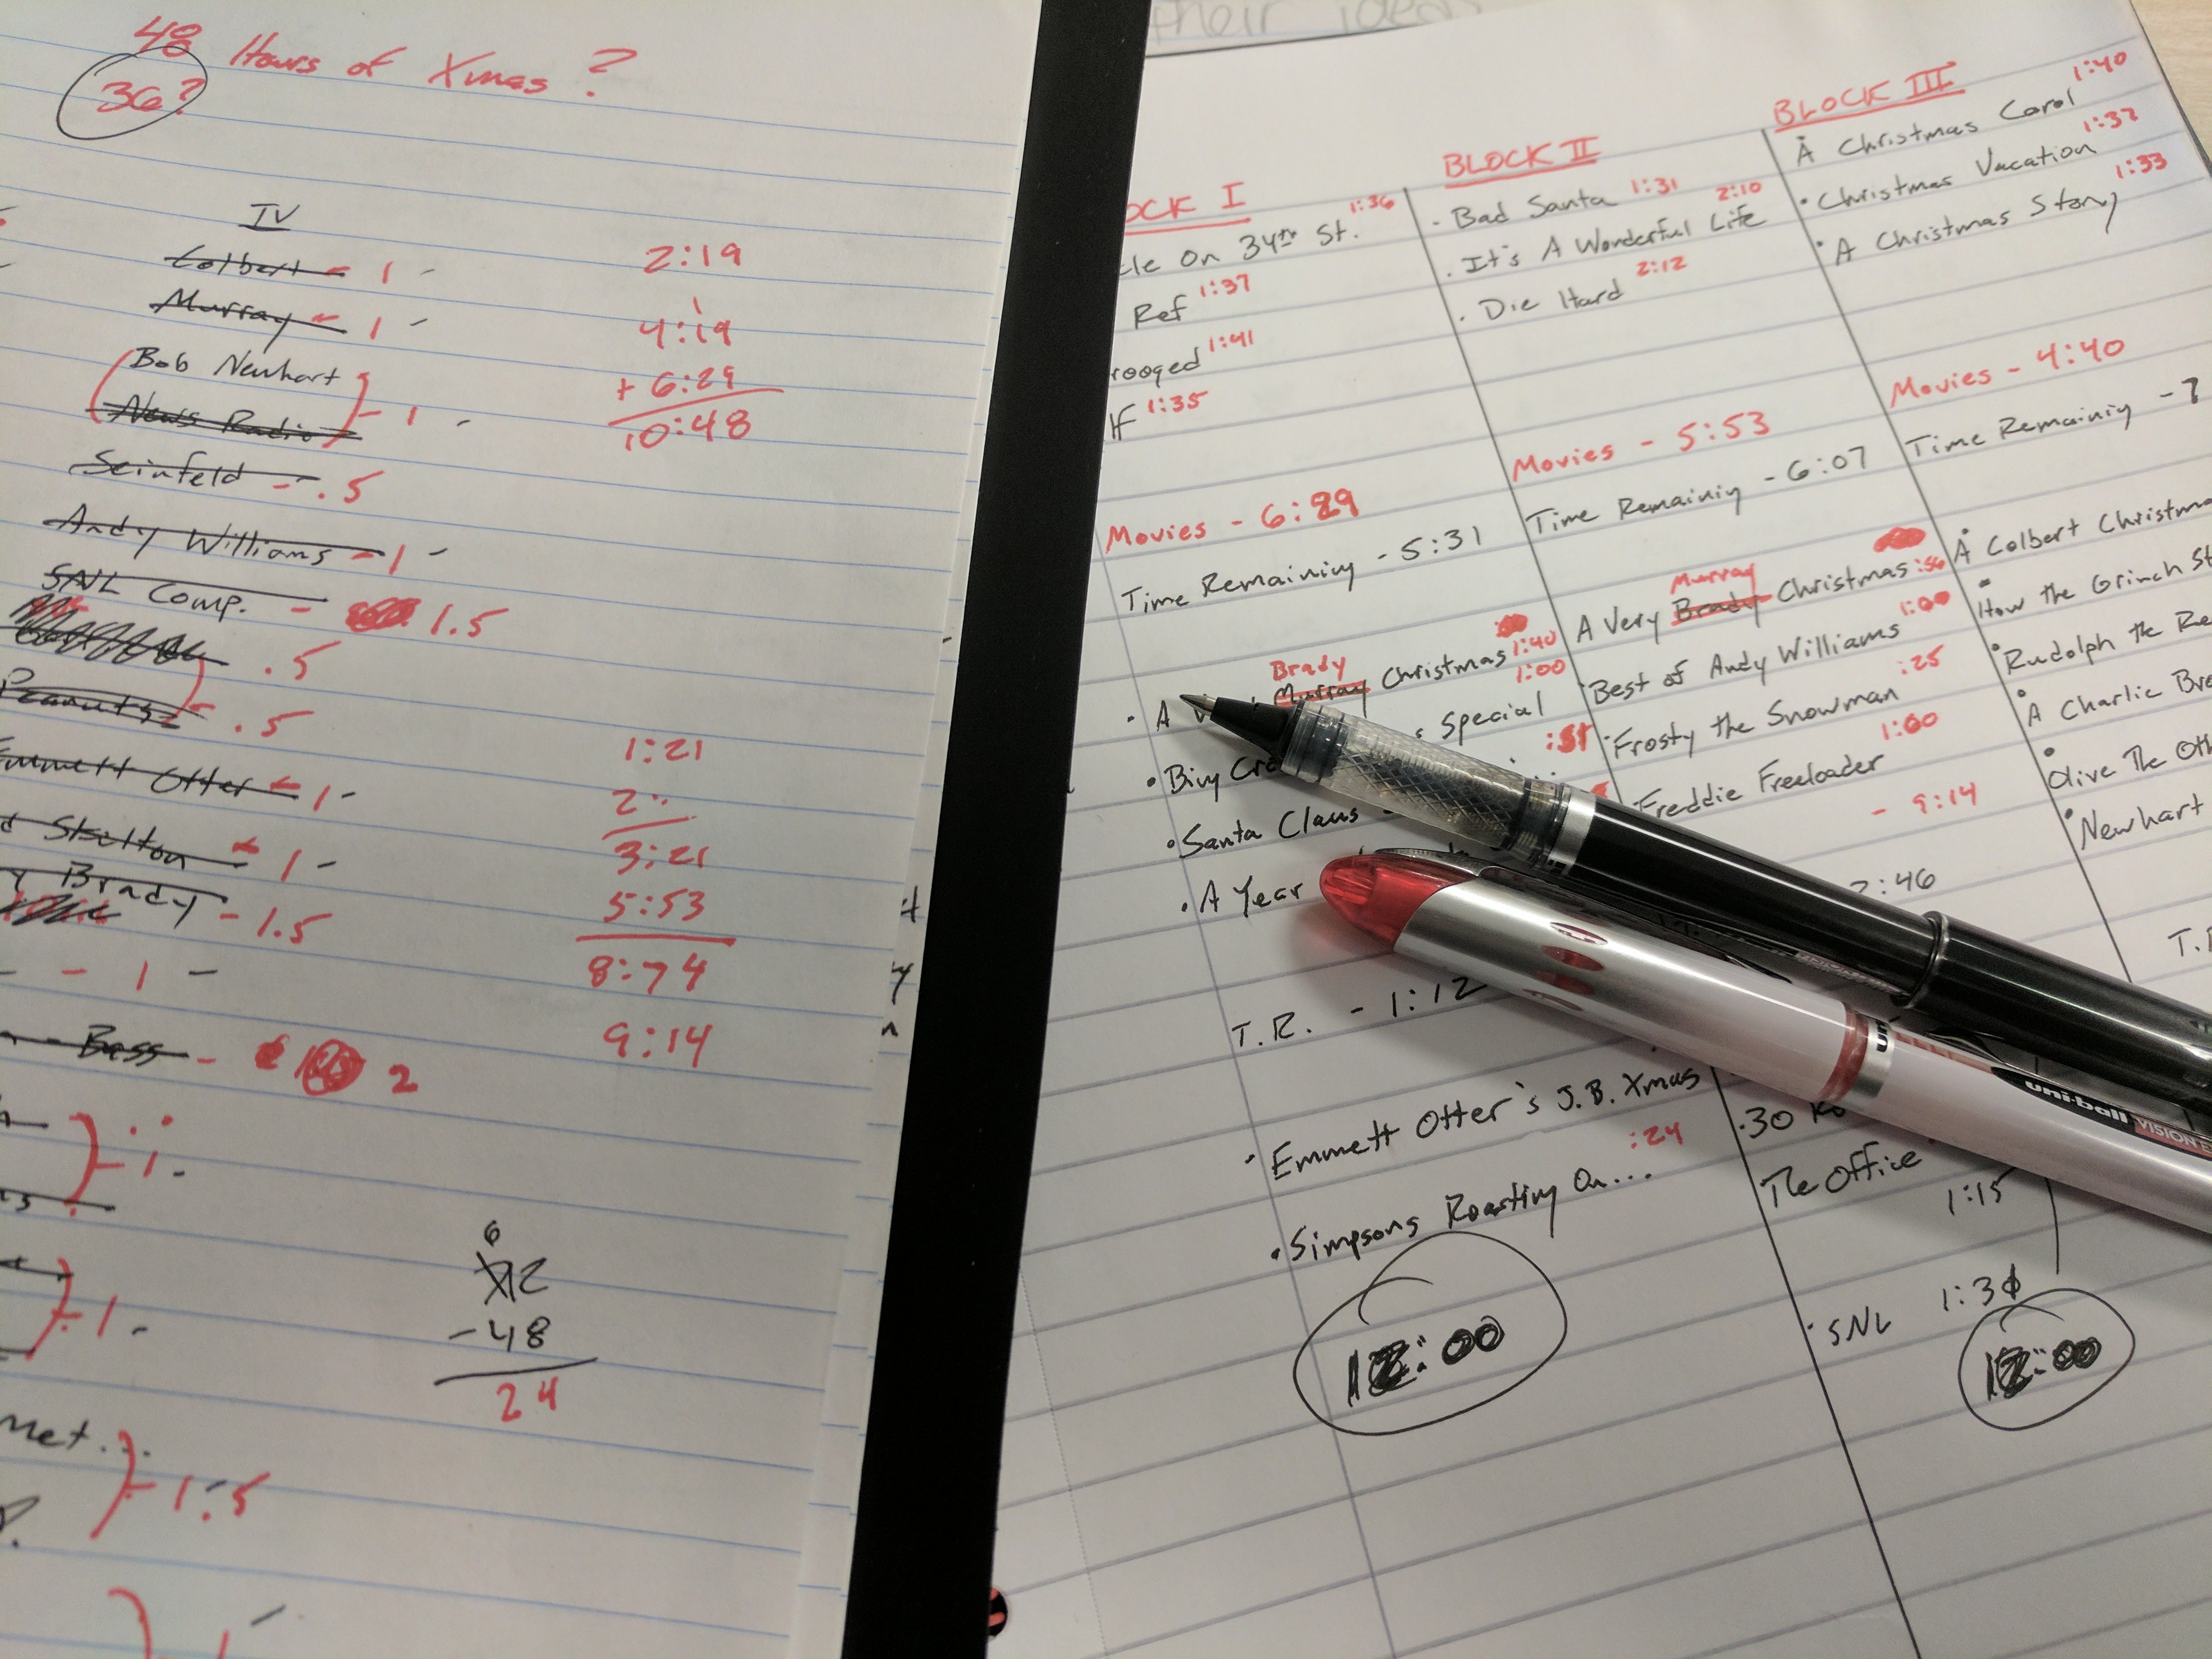 48 Hours of Xmas?
36?
IV
Colbert - 1 -
2:19
Murray - 1 -
1
4:19
Bob Newhart
+ 6:29
News Radio - 1 -
10:48
Seinfeld - .5
Andy Williams - 1 -
SNL Comp. - 1.5
.5
Peanuts - .5
1:21
Emmett Otter - 1 -
2
3:21
Skelton - 1 -
5:53
Brady - 1.5
8:74
- 1 -
9:14
Bass - 2
- 1 -
6
- 1 -
-48
24
Met...
- 1.5
their ideas
OCK I
cle On 34th St. 1:36
Ref 1:37
rooged 1:41
lf 1:35
Movies - 6:29
Time Remaining - 5:31
Brady
A Murray Christmas 1:40
Bing Special 1:00
• Santa Claus
• A Year
T.R. - 1:12
• Emmett Otter's J.B. Xmas
• Simpsons Roasting On... :24
12:00
BLOCK II
• Bad Santa 1:31
• It's A Wonderful Life 2:10
• Die Hard 2:12
Movies - 5:53
Time Remaining - 6:07
Murray
A Very Brady Christmas
• Best of Andy Williams 1:00
• Frosty the Snowman :25
Freddie Freeloader 1:00
- 9:14
2:46
• 30
The Office
1:15
• SNL 1:30
12:00
BLOCK III
• A Christmas Carol 1:40
• Christmas Vacation 1:37
• A Christmas Story 1:33
Movies - 4:40
Time Remaining - 7
• A Colbert Christma
• How the Grinch St
• Rudolph the Re
• A Charlie Bro
• Olive The Oth
• Newhart
uni-ball VISION